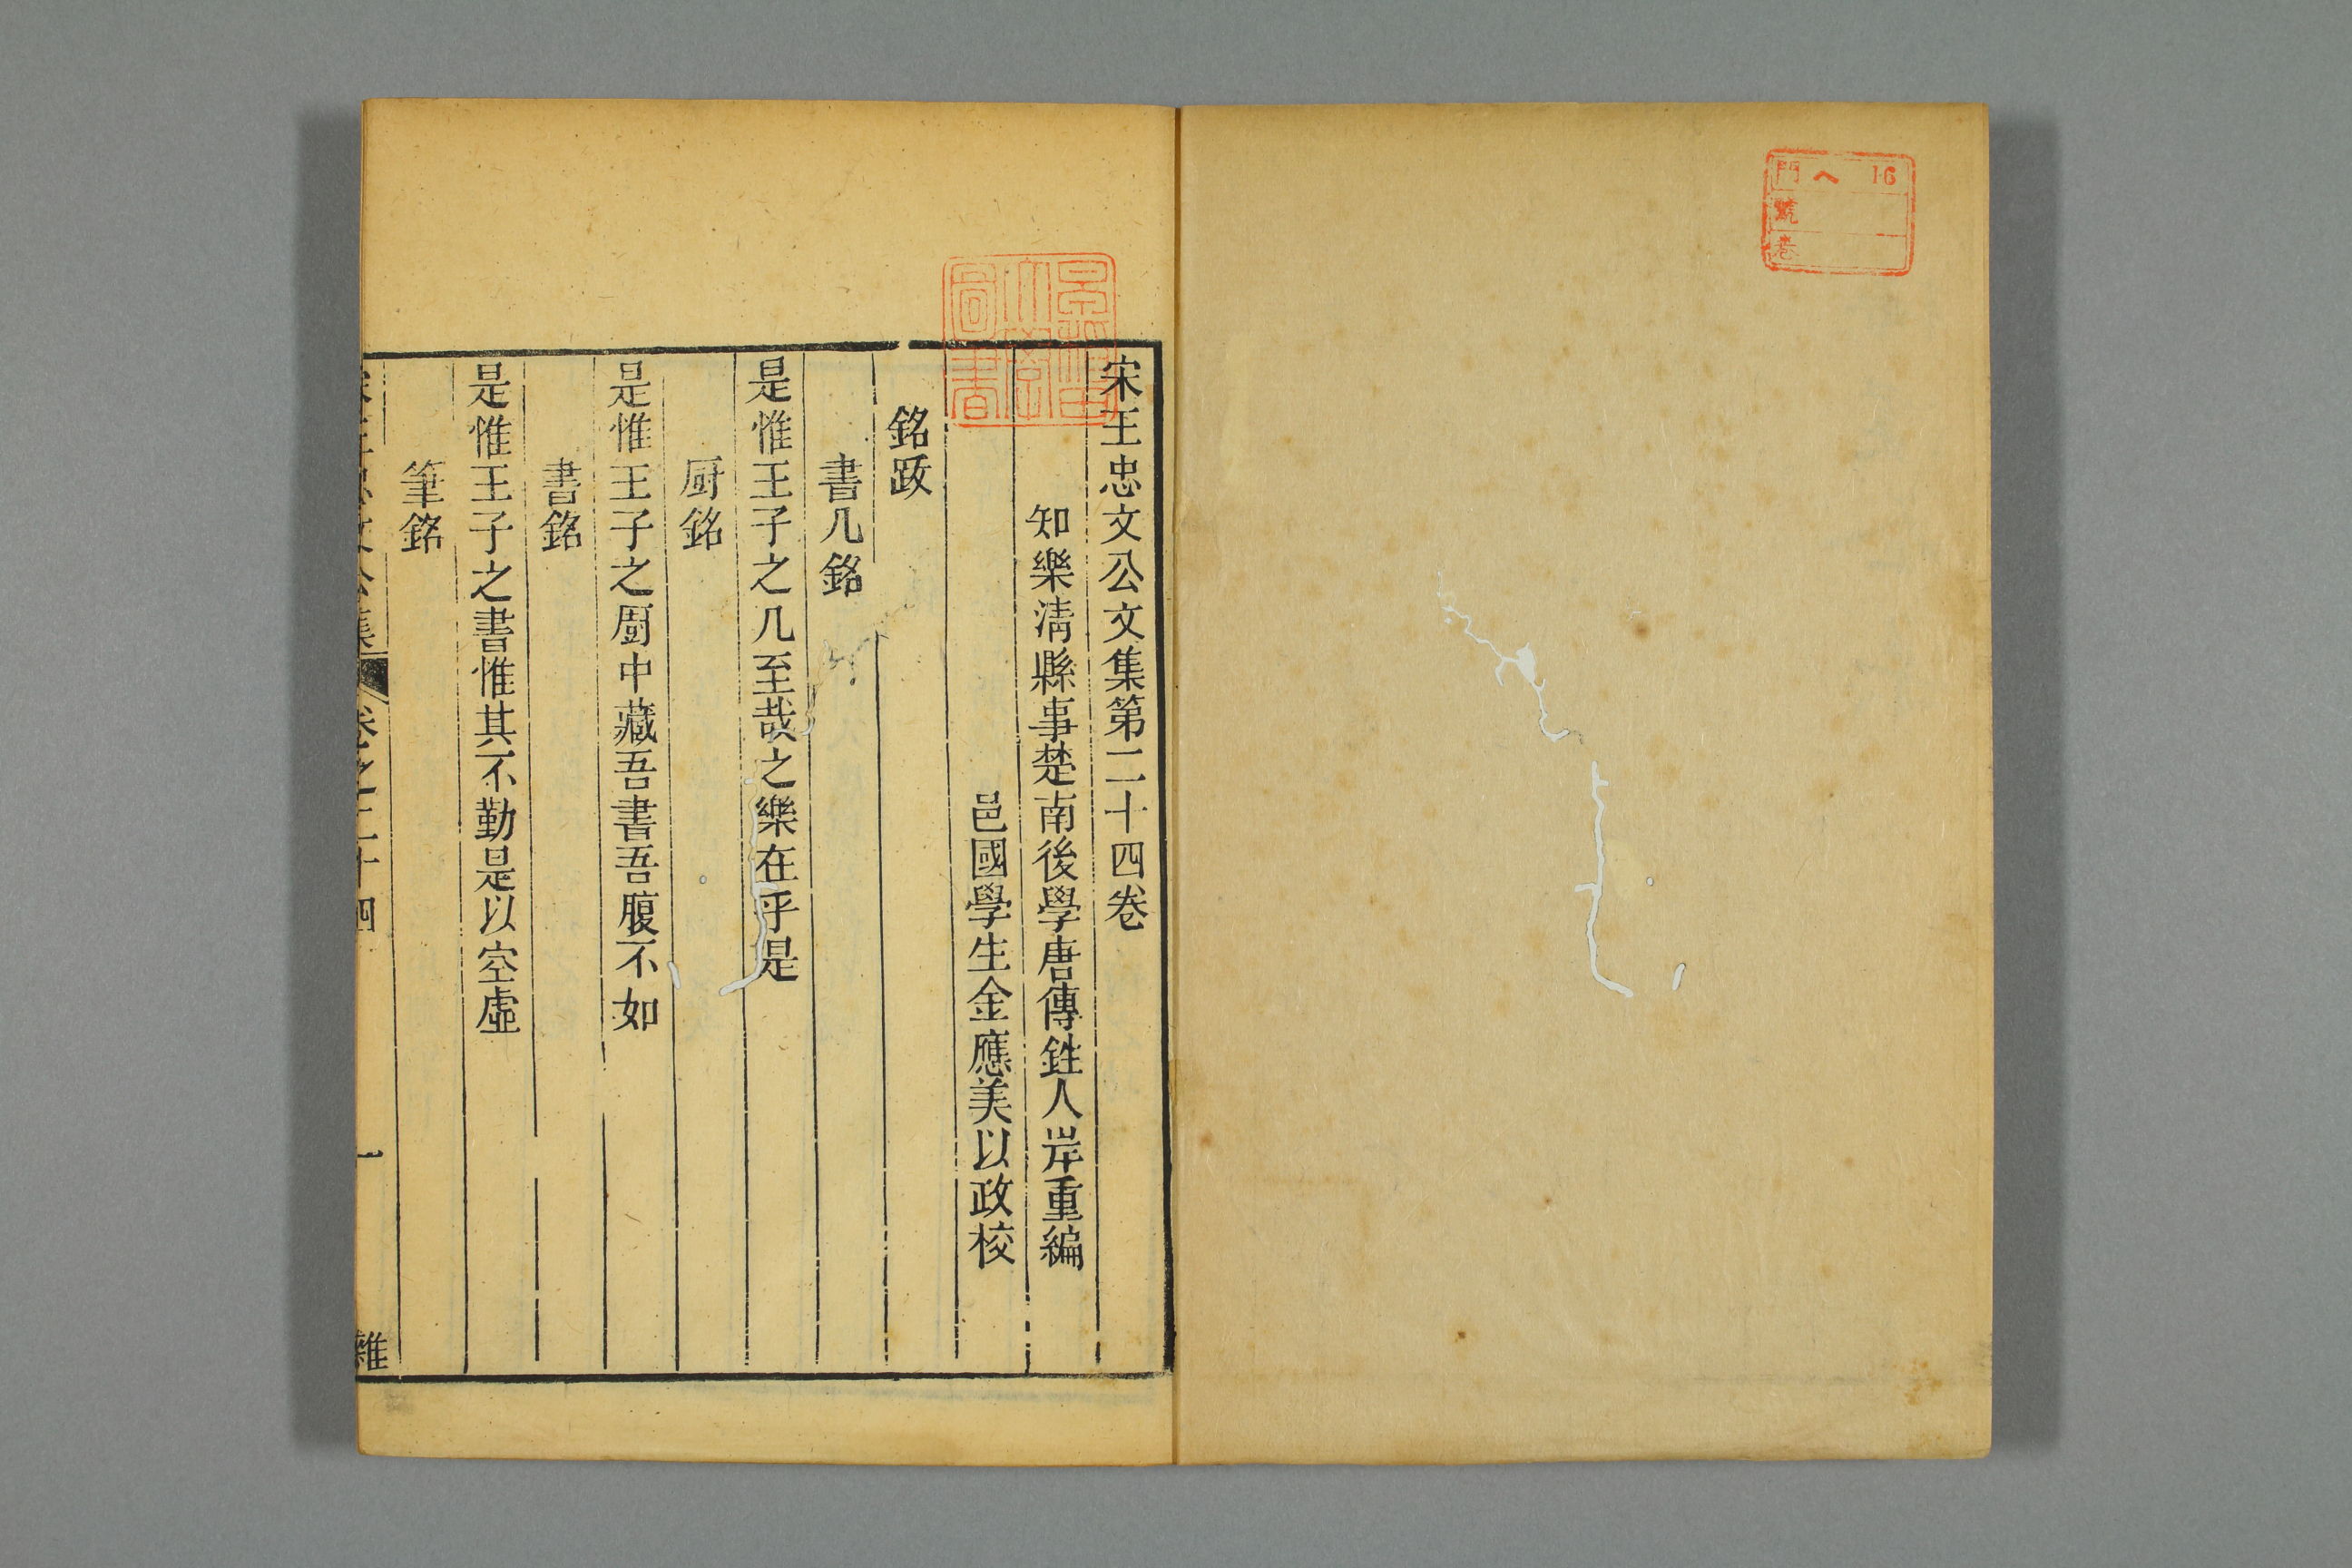 門 へ 16
號
卷
宋王忠文公文集第二十四卷
知樂淸縣事楚南後學唐傳鉎人岸重編
邑國學生金應美以政校
銘跋
書几銘
是惟王子之几至哉之樂在乎是
厨銘
是惟王子之厨中藏吾書吾腹不如
書銘
是惟王子之書惟其不勤是以空虛
筆銘
宋王忠文公集 卷之二十四 一 雜